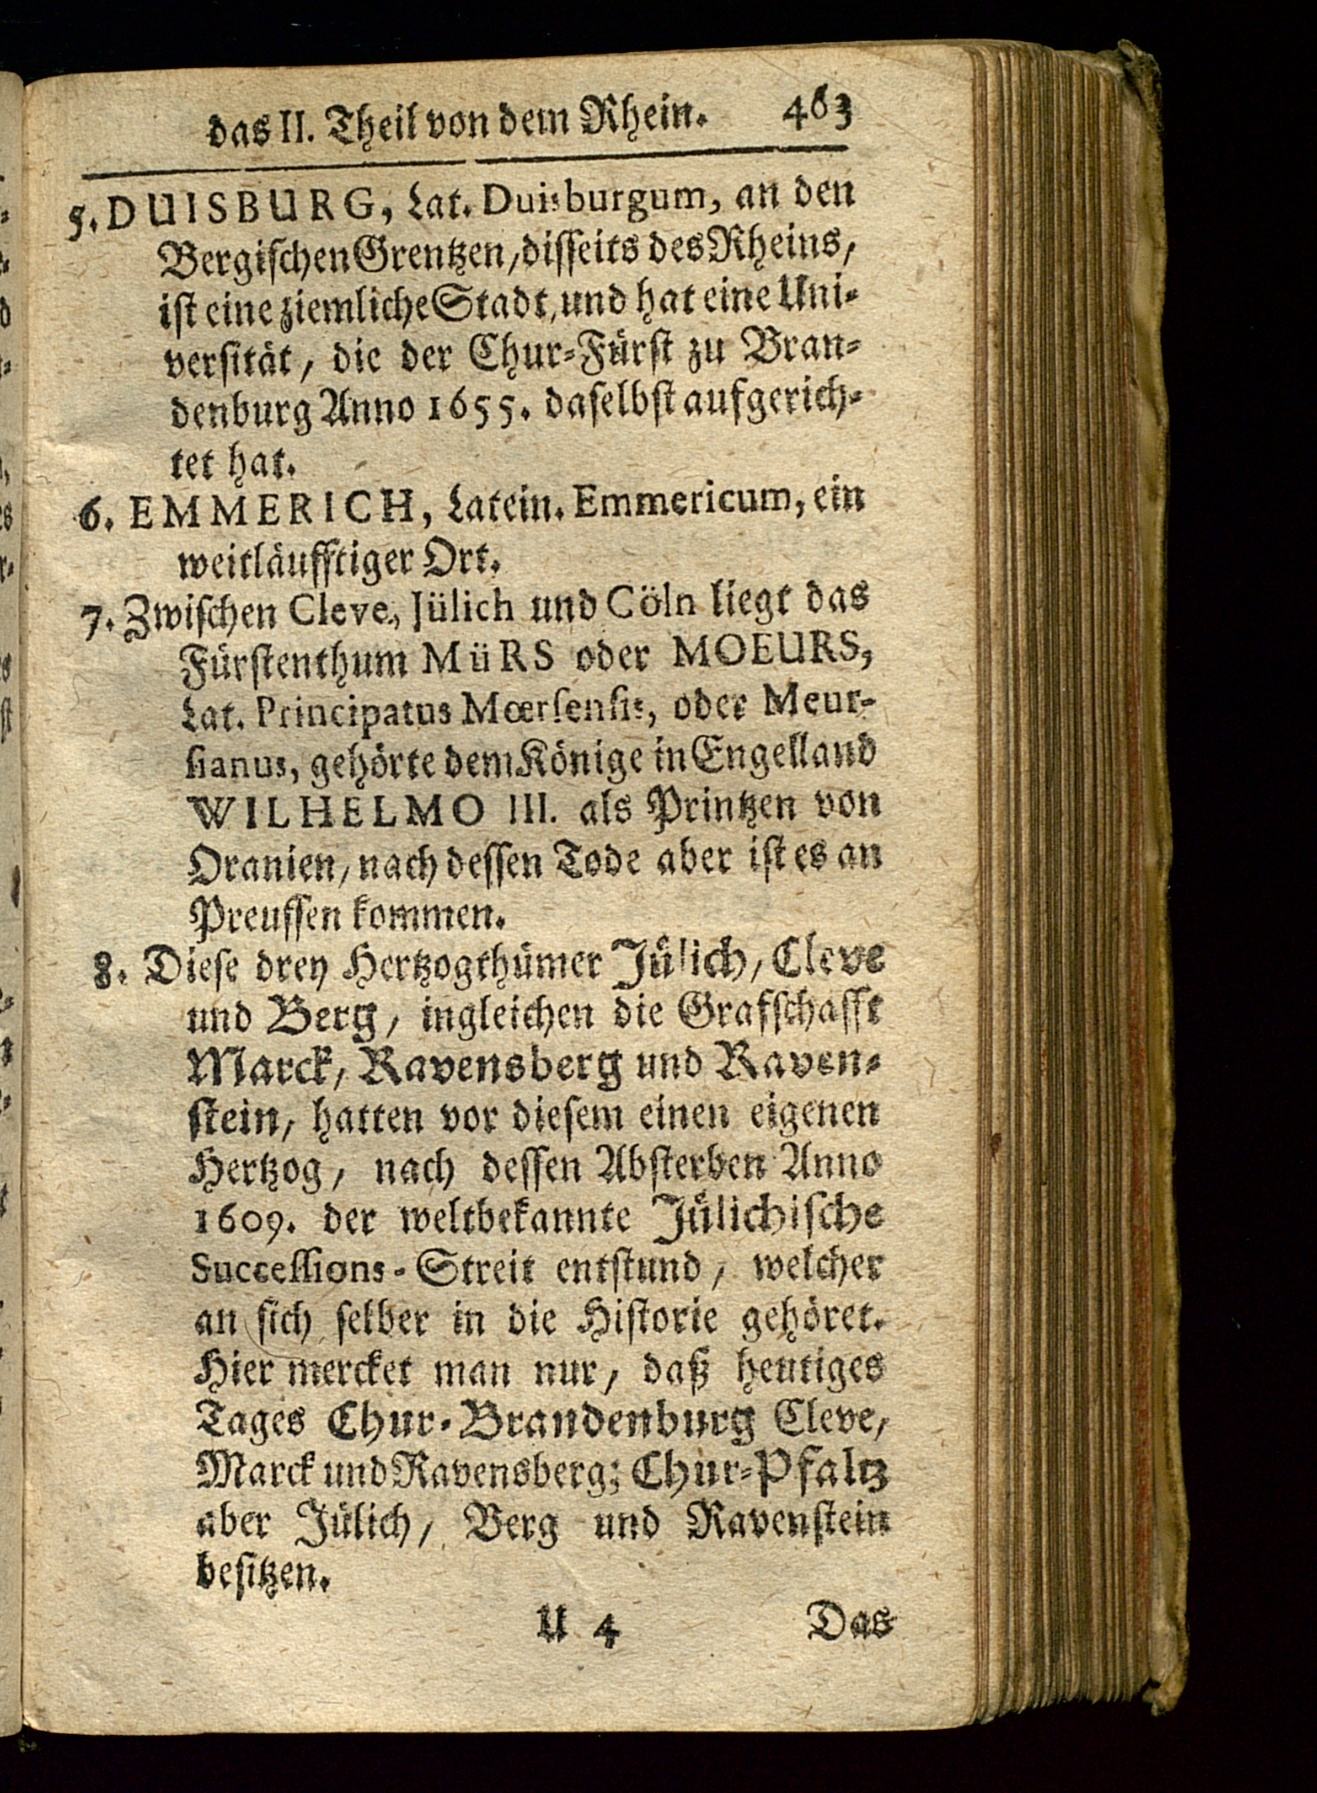 das II. Theil von dem Rhein. 463
5. DUISBURG, Lat. Duisburgum, an den
Bergischen Grentzen, disseits des Rheins,
ist eine ziemliche Stadt, und hat eine Uni-
versität, die der Chur-Fürst zu Bran-
denburg Anno 1655. daselbst aufgerich-
tet hat.
6. EMMERICH, Latein. Emmericum, ein
weitläufftiger Ort.
7. Zwischen Cleve, Jülich und Cöln liegt das
Fürstenthum MüRS oder MOEURS,
Lat. Principatus Mœrsensis, oder Meur-
sianus, gehörte dem Könige in Engelland
WILHELMO III. als Printzen von
Oranien, nach dessen Tode aber ist es an
Preussen kommen.
8. Diese drey Hertzogthümer Jülich, Cleve
und Berg, ingleichen die Grafschafft
Marck, Ravensberg und Raven-
stein, hatten vor diesem einen eigenen
Hertzog, nach dessen Absterben Anno
1609. der weltbekannte Jülichische
Successions-Streit entstund, welcher
an sich selber in die Historie gehöret.
Hier mercket man nur, daß heutiges
Tages Chur-Brandenburg Cleve,
Marck und Ravensberg; Chur-Pfaltz
aber Jülich, Berg und Ravenstein
besitzen.
U 4 Das